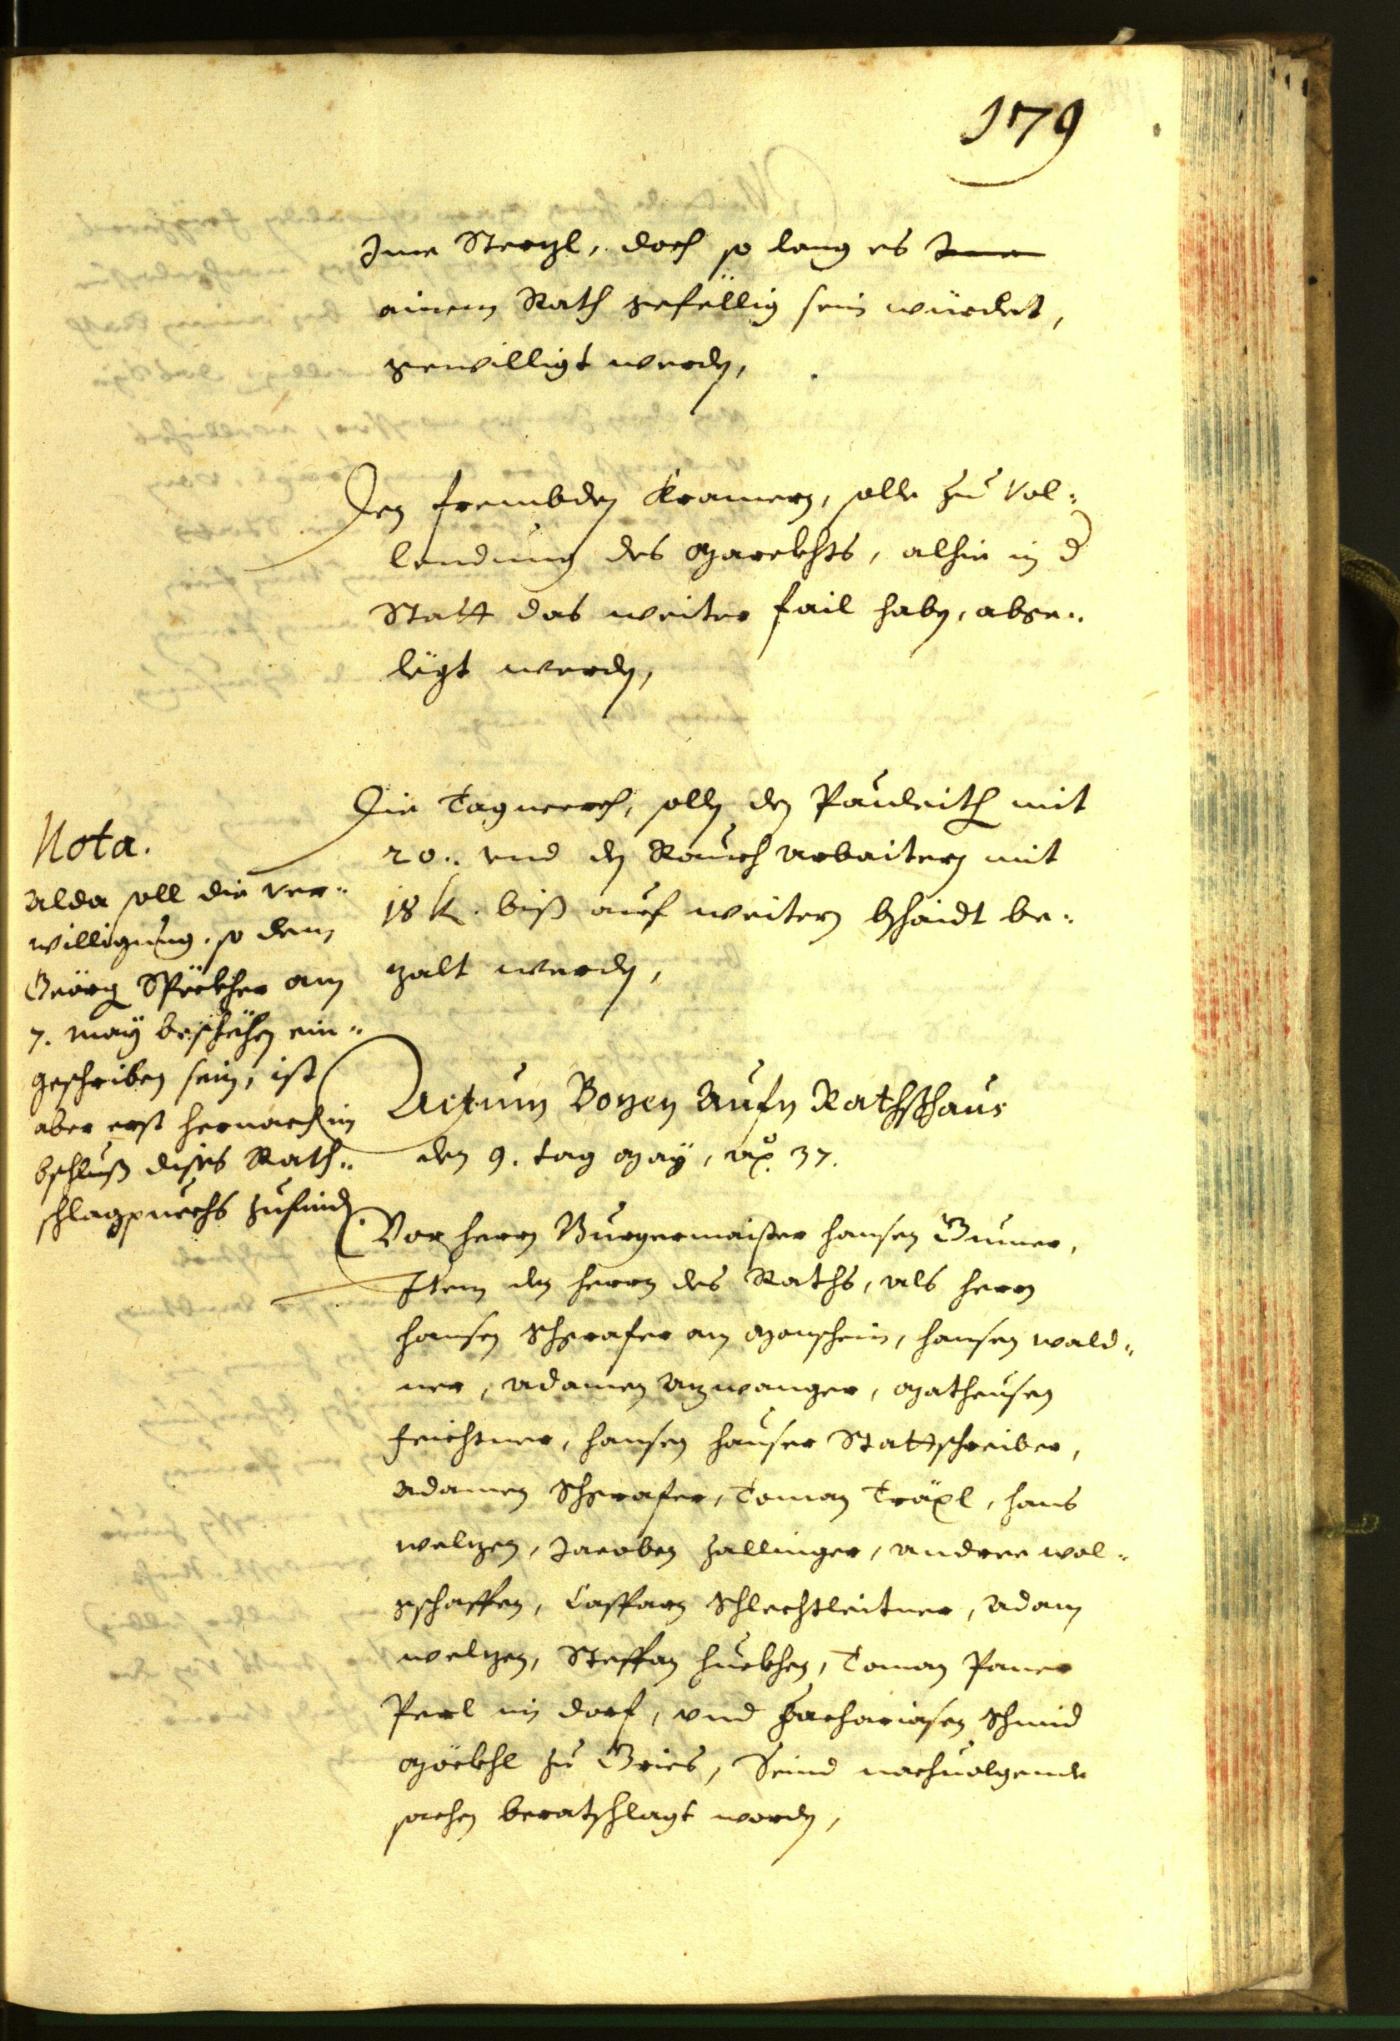 179
Ime Stertzl, doch so lang es
ainem Rath gefellig sein würdet,
gewilligt werden,
Den frembden Kramern, solle zu vol-
lendung des Marckhts, alhie in d
Statt das weiter fail haben, abge-
legt werden,
Die Tagwerch, sollen den Pauleith mit
20. und den Rauch Arbaitern mit
18 k. biß auf weitern bschaidt be-
zalt werden,
Nota.
Alda soll die ver-
willigung, so dem
Geörg Spörkher am
7. May beschehen ein-
geschriben sein, ist
aber erst hernach im
bschluß dises Rath-
schlagpuechs zufinden
Actum Bozen Aufn Rathshaus
den 9. tag May, ao. 37.
Vor herrn Burgermaister Hansen Gumer,
Item den herrn des Raths, als herrn
Hansen Schgrafer am Monschein, Hansen Wald-
ner, Adamen Atzwanger, Matheusen
Feichtner, Hansen Hauser Stattschreiber,
Adamen Schgrafer, Toman Träxl, Hans
Weltzen, Jacoben Zallinger, Andree Wol-
gschaffen, Casparn Schlechtleitner, Adam
Weltzen, Steffan Hueckhen, Toman Paner
Perl im dorf, und Zachariasen Schmid
Möckhl zu Gries, Seind nachuolgende
sachen beratschlagt worden,